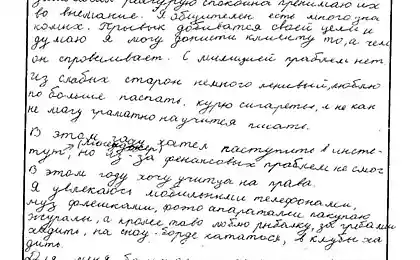 спокойна пренимаю их
во внемание. Я общителен есть много зна
комых. Привык добеватся своей цели и
думаю я могу донисти клиенту то, а чем
он спрашивает. С милицией праблем нет
из слабых старон немного ленивый люблю
по больше паспать. курю сигареты, и не как
не могу граматно научится писать.
В этом году хател паступить в инсте-
тут, но из-за фенансовых проблем не смог
В этом году хочу учитца на права.
Я увлекаюсь мобильними телефонами,
муз флешками, фото апаратами пакупаю
журалы, а кроме таво люблю рыбалку, за грибами
хадить, на сноу-борде кататься, в клубы ха
дить.
Для меня